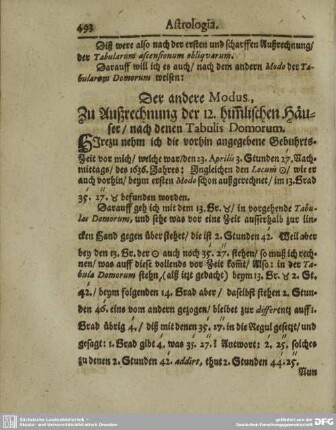 493 Astrologia.
Diß were also nach der ersten und scharffen Außrechnung/
der Tabularum ascensionum obliqvarum.
Darauff will ich es auch/ nach dem andern Modo der Ta-
bularum Domorum weisen:
Der andere Modus.
Zu Außrechnung der 12. him̃lischen Häu-
ser/ nach denen Tabulis Domorum.
HIrezu nehm ich die vorhin angegebene Gebuhrts-
Zeit vor mich/ welche war/ den 23. Aprilis 3. Stunden 27. Nach-
mittags/ des 1636. Jahres: Ingleichen den Locum ☉/ wie er
auch vorhin/ beym ersten Modo schon außgerechnet/ im 13. Grad
35. 27. ♉ befunden worden.
Darauff geh ich mit dem 13. Gr. ♉/ in vorgehende Tabu-
las Domorum, und sehe was vor eine Zeit ausserhalb zur lin-
cken Hand gegen über stehet/ die ist 2. Stunden 42. Weil aber
bey den 13. Gr. der ☉ auch noch 35. 27. stehen/ so muß ich rech-
nen/ was auff diese vollends vor Zeit komt/ Also: in der Ta-
bula Domorum stehn, (als itzt gedacht) beym 13. Gr. ♉ 2. St.
42./ beym folgenden 14. Grad aber/ daselbst stehen 2. Stun-
den 46. eins vom andern gezogen/ bleibet zur differentz auff 1.
Grad übrig 4./ diß mit denen 35. 27. in die Regul gesetzt/ und
gesagt: 1. Grad gibt 4. was 35. 27.? Antwort: 2. 25. solches
zu denen 2. Stunden 42. addirt, thut 2. Stunden 44. 25.
Nun
Sächsische Landesbibliothek -
Staats- und Universitätsbibliothek Dresden
gefördert von der
Deutschen Forschungsgemeinschaft